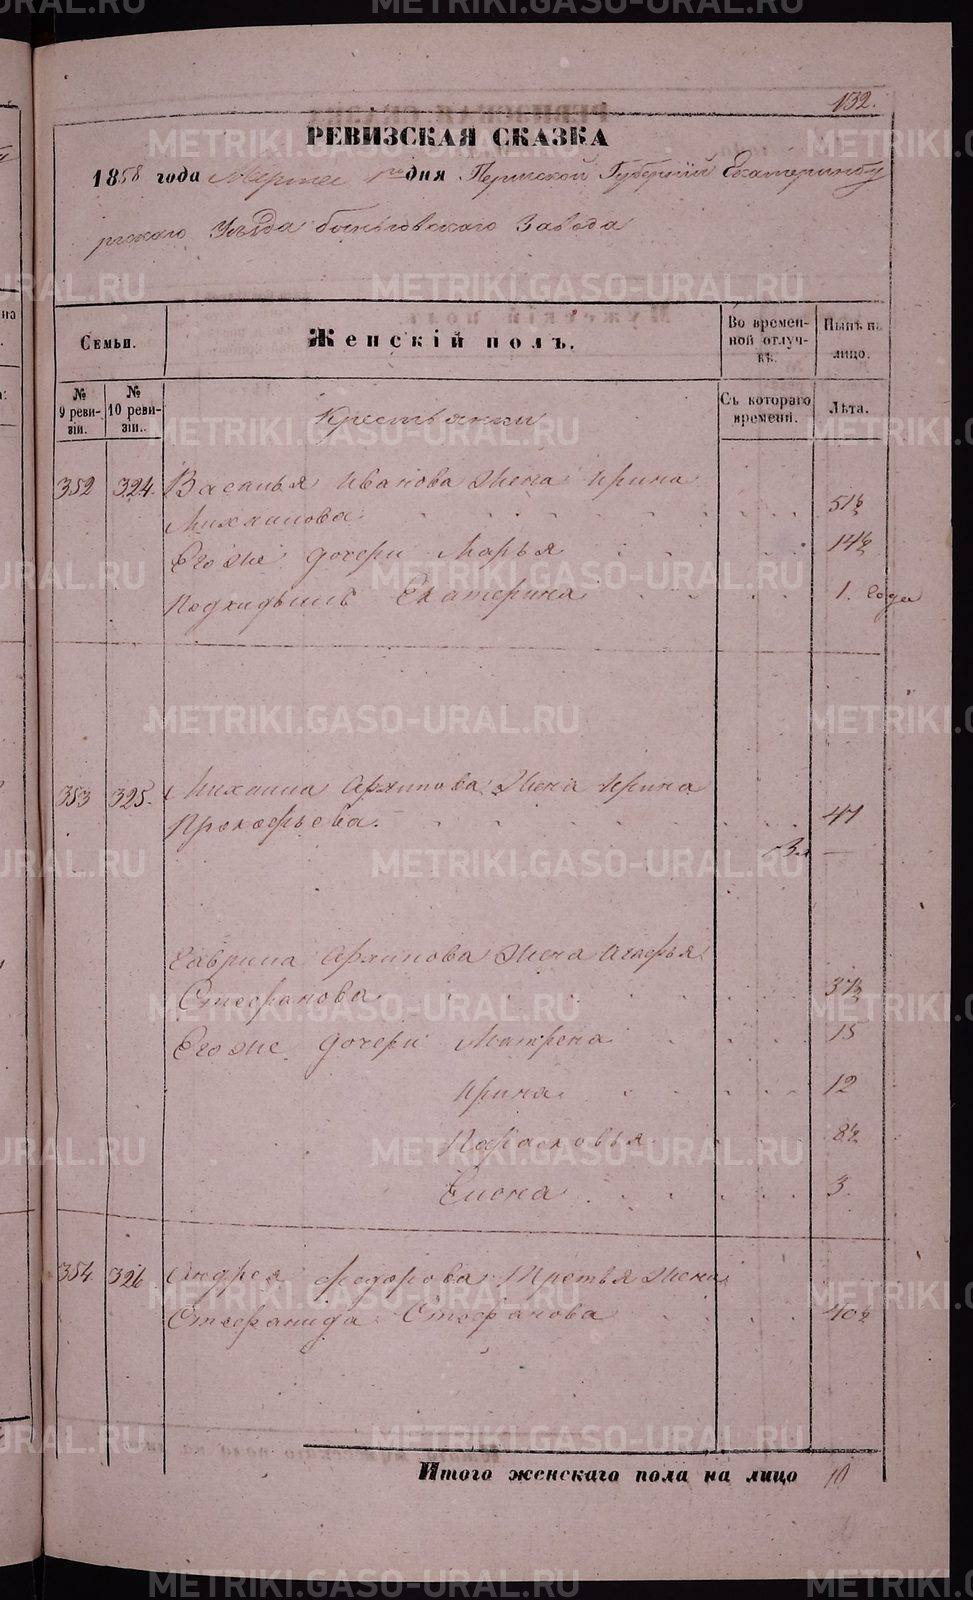 132.
РЕВИЗСКАЯ СКАЗКА
1858 года Марта 1го дня Пермской Губерніи Екатеринбу
ргскаго Уѣзда Завода
Семьи.
Женскій полъ.
Во времен-
ной отлуч-
кѣ.
Нынѣ на
лицо.
№
9 реви-
зіи.
№
10 реви-
зіи.
Съ котораго
времени.
Лѣта.
Крестьянки
352 324. Василья Иванова Жена Ирина
Михайлова 51½
Его же дочери Марья 14½
Подкидышъ Екатерина 1. года
353 325. Михаила Архипова Жена Ирина
Прокофьева. 47
Гаврила Архипова Жена Агафья
Стефанова 37½
Его же дочери Матрена 15
Ирина 12
Парасковья 8½
Елена 3
354 326 Андрея Федорова Третья Жена
Стефанида Стефанова 40½
Итого женскаго пола на лицо 10
METRIKI.GASO-URAL.RU